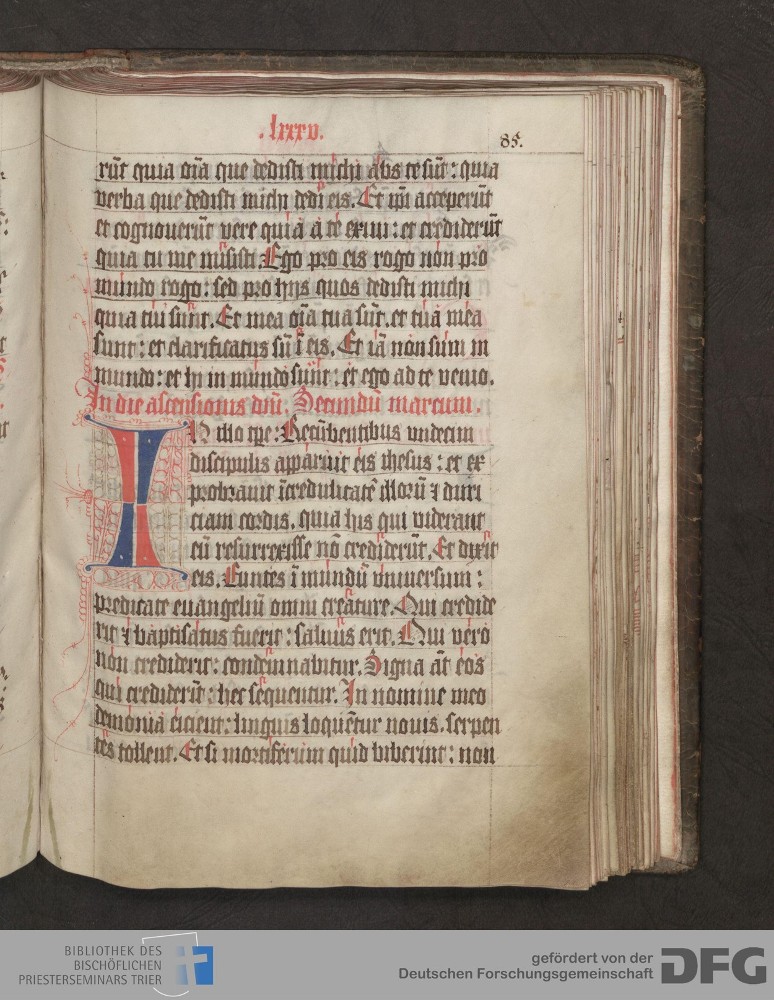 .lxxxv.
85.
rūt quia oīa que dedisti michi abs te sūt: quia
verba que dedisti michi dedi eis. Et ipī acceperūt
et cognouerūt vere quia a te exiui: et crediderūt
quia tu me misisti. Ego pro eis rogo non pro
mundo rogo: sed pro hijs quos dedisti michi
quia tui sunt. Et mea oīa tua sūt. et tua mea
sunt: et clarificatus sū ī eis. Et iā non sum in
mundo: et hi in mundo sunt: et ego ad te venio.
In die ascensionis dnī. Secundū marcum.
IN illo tpe: Recūbentibus vndecim
discipulis apparuit eis ihesus: et ex
probrauit īcredulitatē illorū ⁊ duri
ciam cordis. quia his qui viderant
eū resurrexisse nō crediderūt. Et dixit
eis. Euntes ī mundū vniuersum:
predicate euangeliū omni creature. Qui credide
rit ⁊ baptisatus fuerit: saluus erit. Qui vero
non crediderit: condemnabitur. Signa āt eos
qui crediderūt: hec sequentur. In nomine meo
demonia eicient: linguis loquētur nouis. serpen
tes tollent. Et si mortiferum quid biberint: non
BIBLIOTHEK DES
BISCHÖFLICHEN
PRIESTERSEMINARS TRIER
gefördert von der
Deutschen Forschungsgemeinschaft
DFG